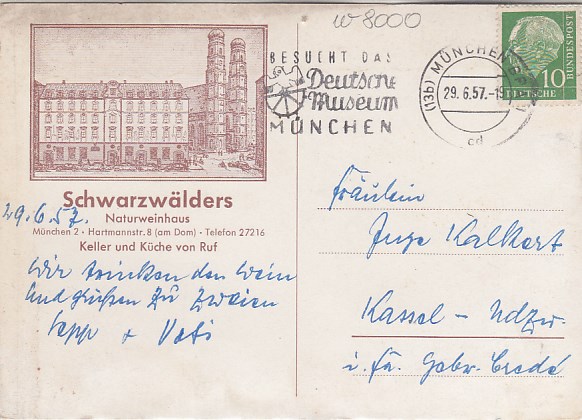 w 8000
BESUCHT DAS
Deutsche
Museum
MÜNCHEN
(13b) MÜNCHEN
29. 6. 57.-19
cd
10
DEUTSCHE
BUNDESPOST
Schwarzwälders
Naturweinhaus
München 2 · Hartmannstr. 8 (am Dom) · Telefon 27216
Keller und Küche von Ruf
29.6.57.
Wir trinken den Wein
und grüßen zu Zweien
Sepp + Vati
Fräulein
Inge Kalkert
Kassel - Ndzw.
i. Fa. Gebr. Credé